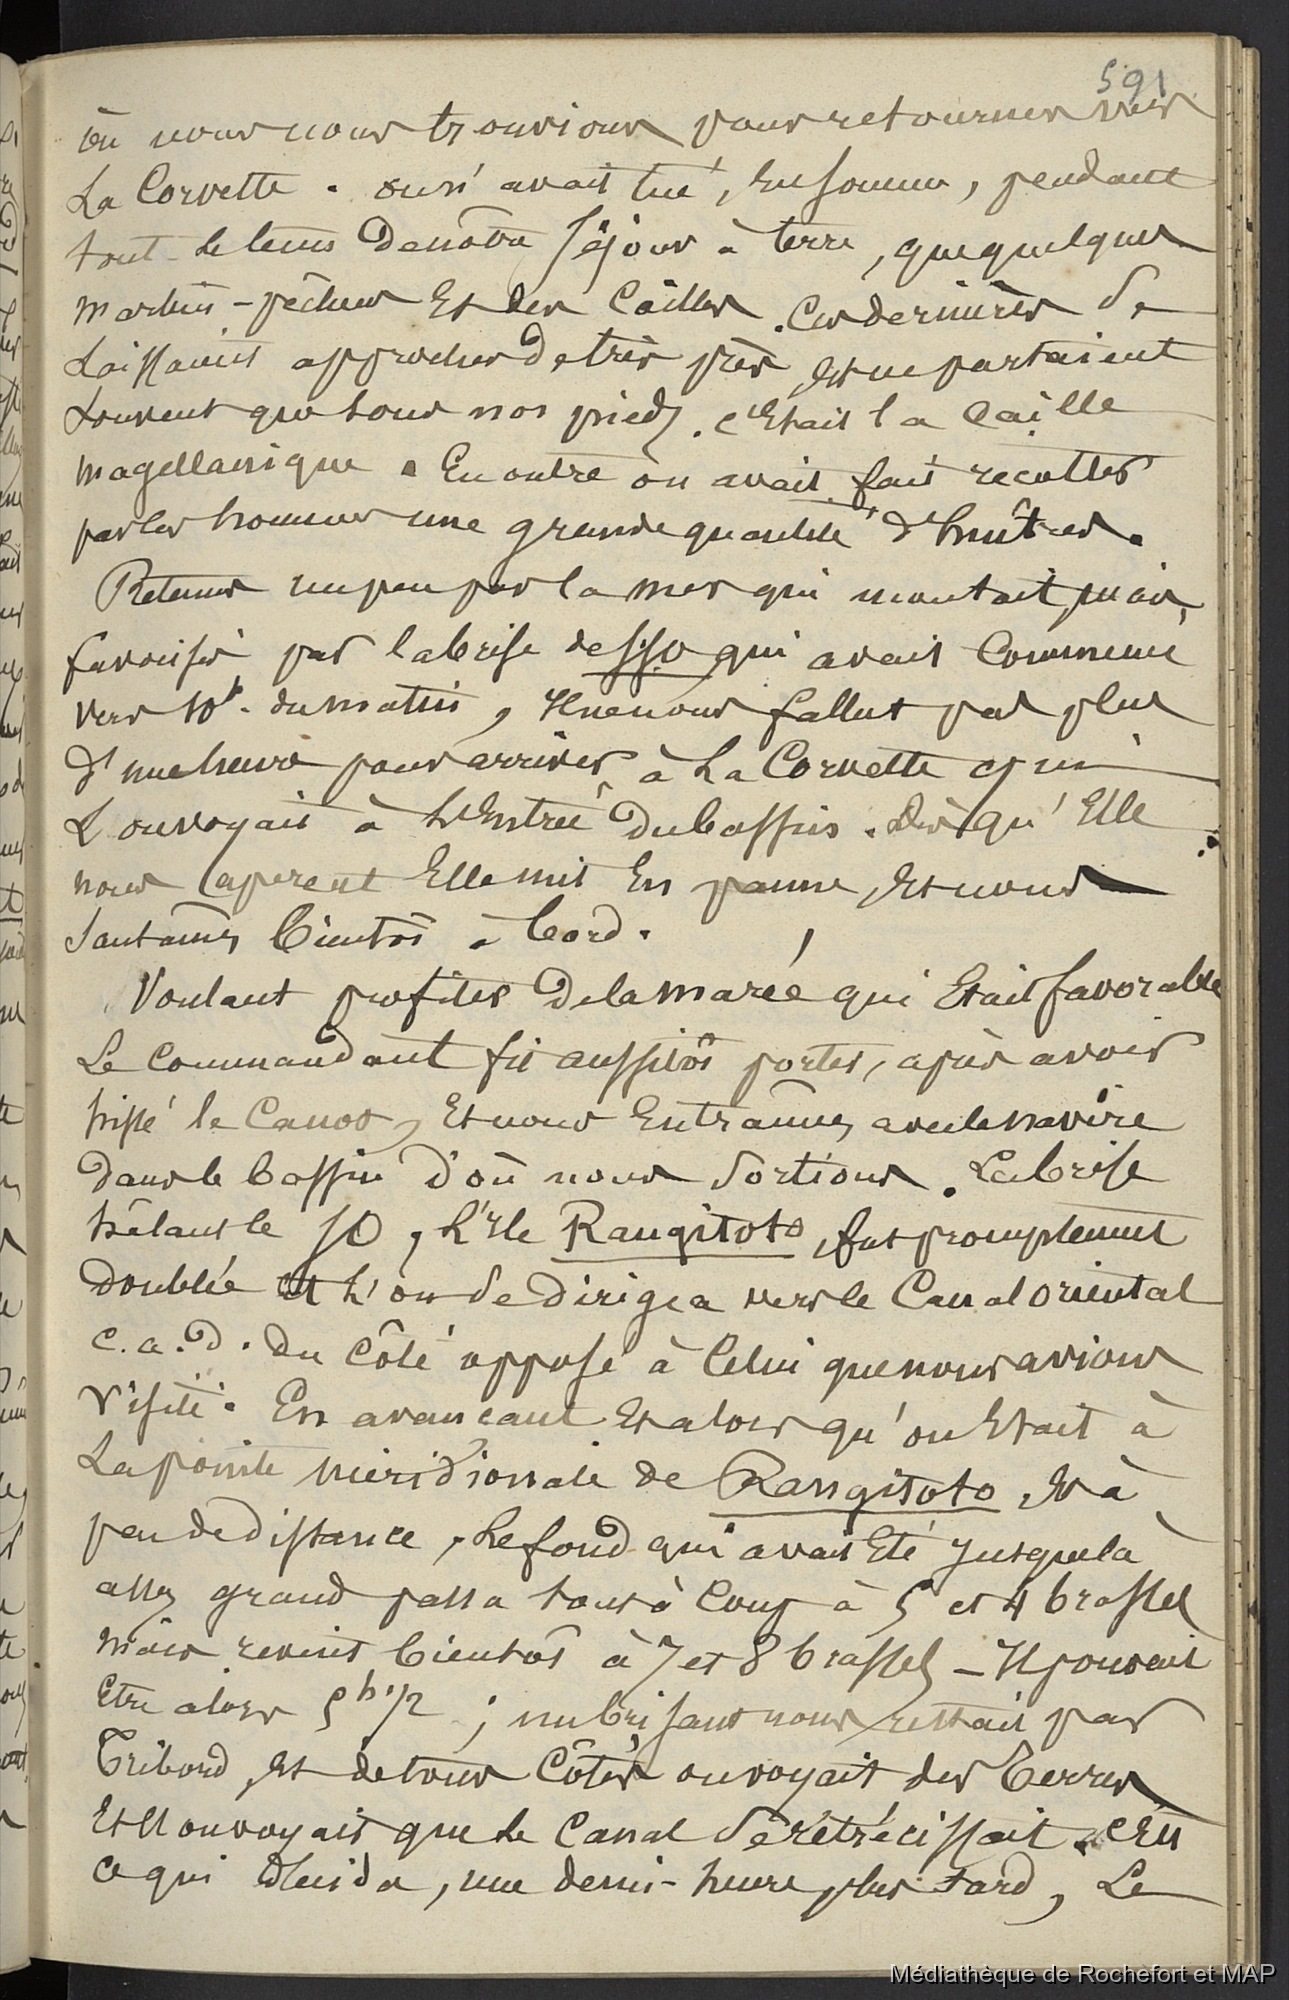 591
où nous nous trouvions pour retourner vers
La Corvette. on n'avait tué, En somme, pendant
tout le tems de nôtre Séjour à terre, que quelques
martins-pêcheurs Et des Cailles. Ces dernières Se
Laissaient approcher de très près, Et ne partaient
Souvent que sous nos pieds. c'Etait la Caille
magellanique. En outre on avait fait récolter
par les hommes une grande quantité d'huîtres.
Retenus un peu par la mer qui montait, mais
favorisés par la brise de SSO qui avait Commencé
vers 10h. du matin, Il ne nous fallut pas plus
d'une heure pour arriver à La Corvette qui
Louvoyait à L'Entrée du bassin. Dès qu'Elle
nous aperçut Elle mit En panne, Et nous
Sautâmes bientôt à bord.
Voulant profiter de la marée qui Etait favorable
Le Commandant fit aussitôt porter, après avoir
hissé le Canot, Et nous Entrâmes avec le navire
dans le bassin d'où nous Sortions. La brise
hâlant le SO, L'Ile Rangitoto fut promptement
doublée et L'on Se dirigea vers le Canal oriental
c.a.d. du côté opposé à Celui que nous avions
Visité. En avançant Et alors qu'on Etait à
La pointe méridionale de Rangitoto, Et à
peu de distance, Le fond qui avait Eté Jusque là
assez grand passa tout à Coup à 5 et 4 brasses
mais revint bientôt à 7 et 8 brasses – Il pouvait
Etre alors 5h 1/2 ; un brisant nous restait par
Tribord, Et de tous Côtés on voyait des Terres
Et L'on voyait que Le Canal Se rétrécissait. C'Est
ce qui décida, une demi-heure plus tard, Le
Médiathèque de Rochefort et MAP